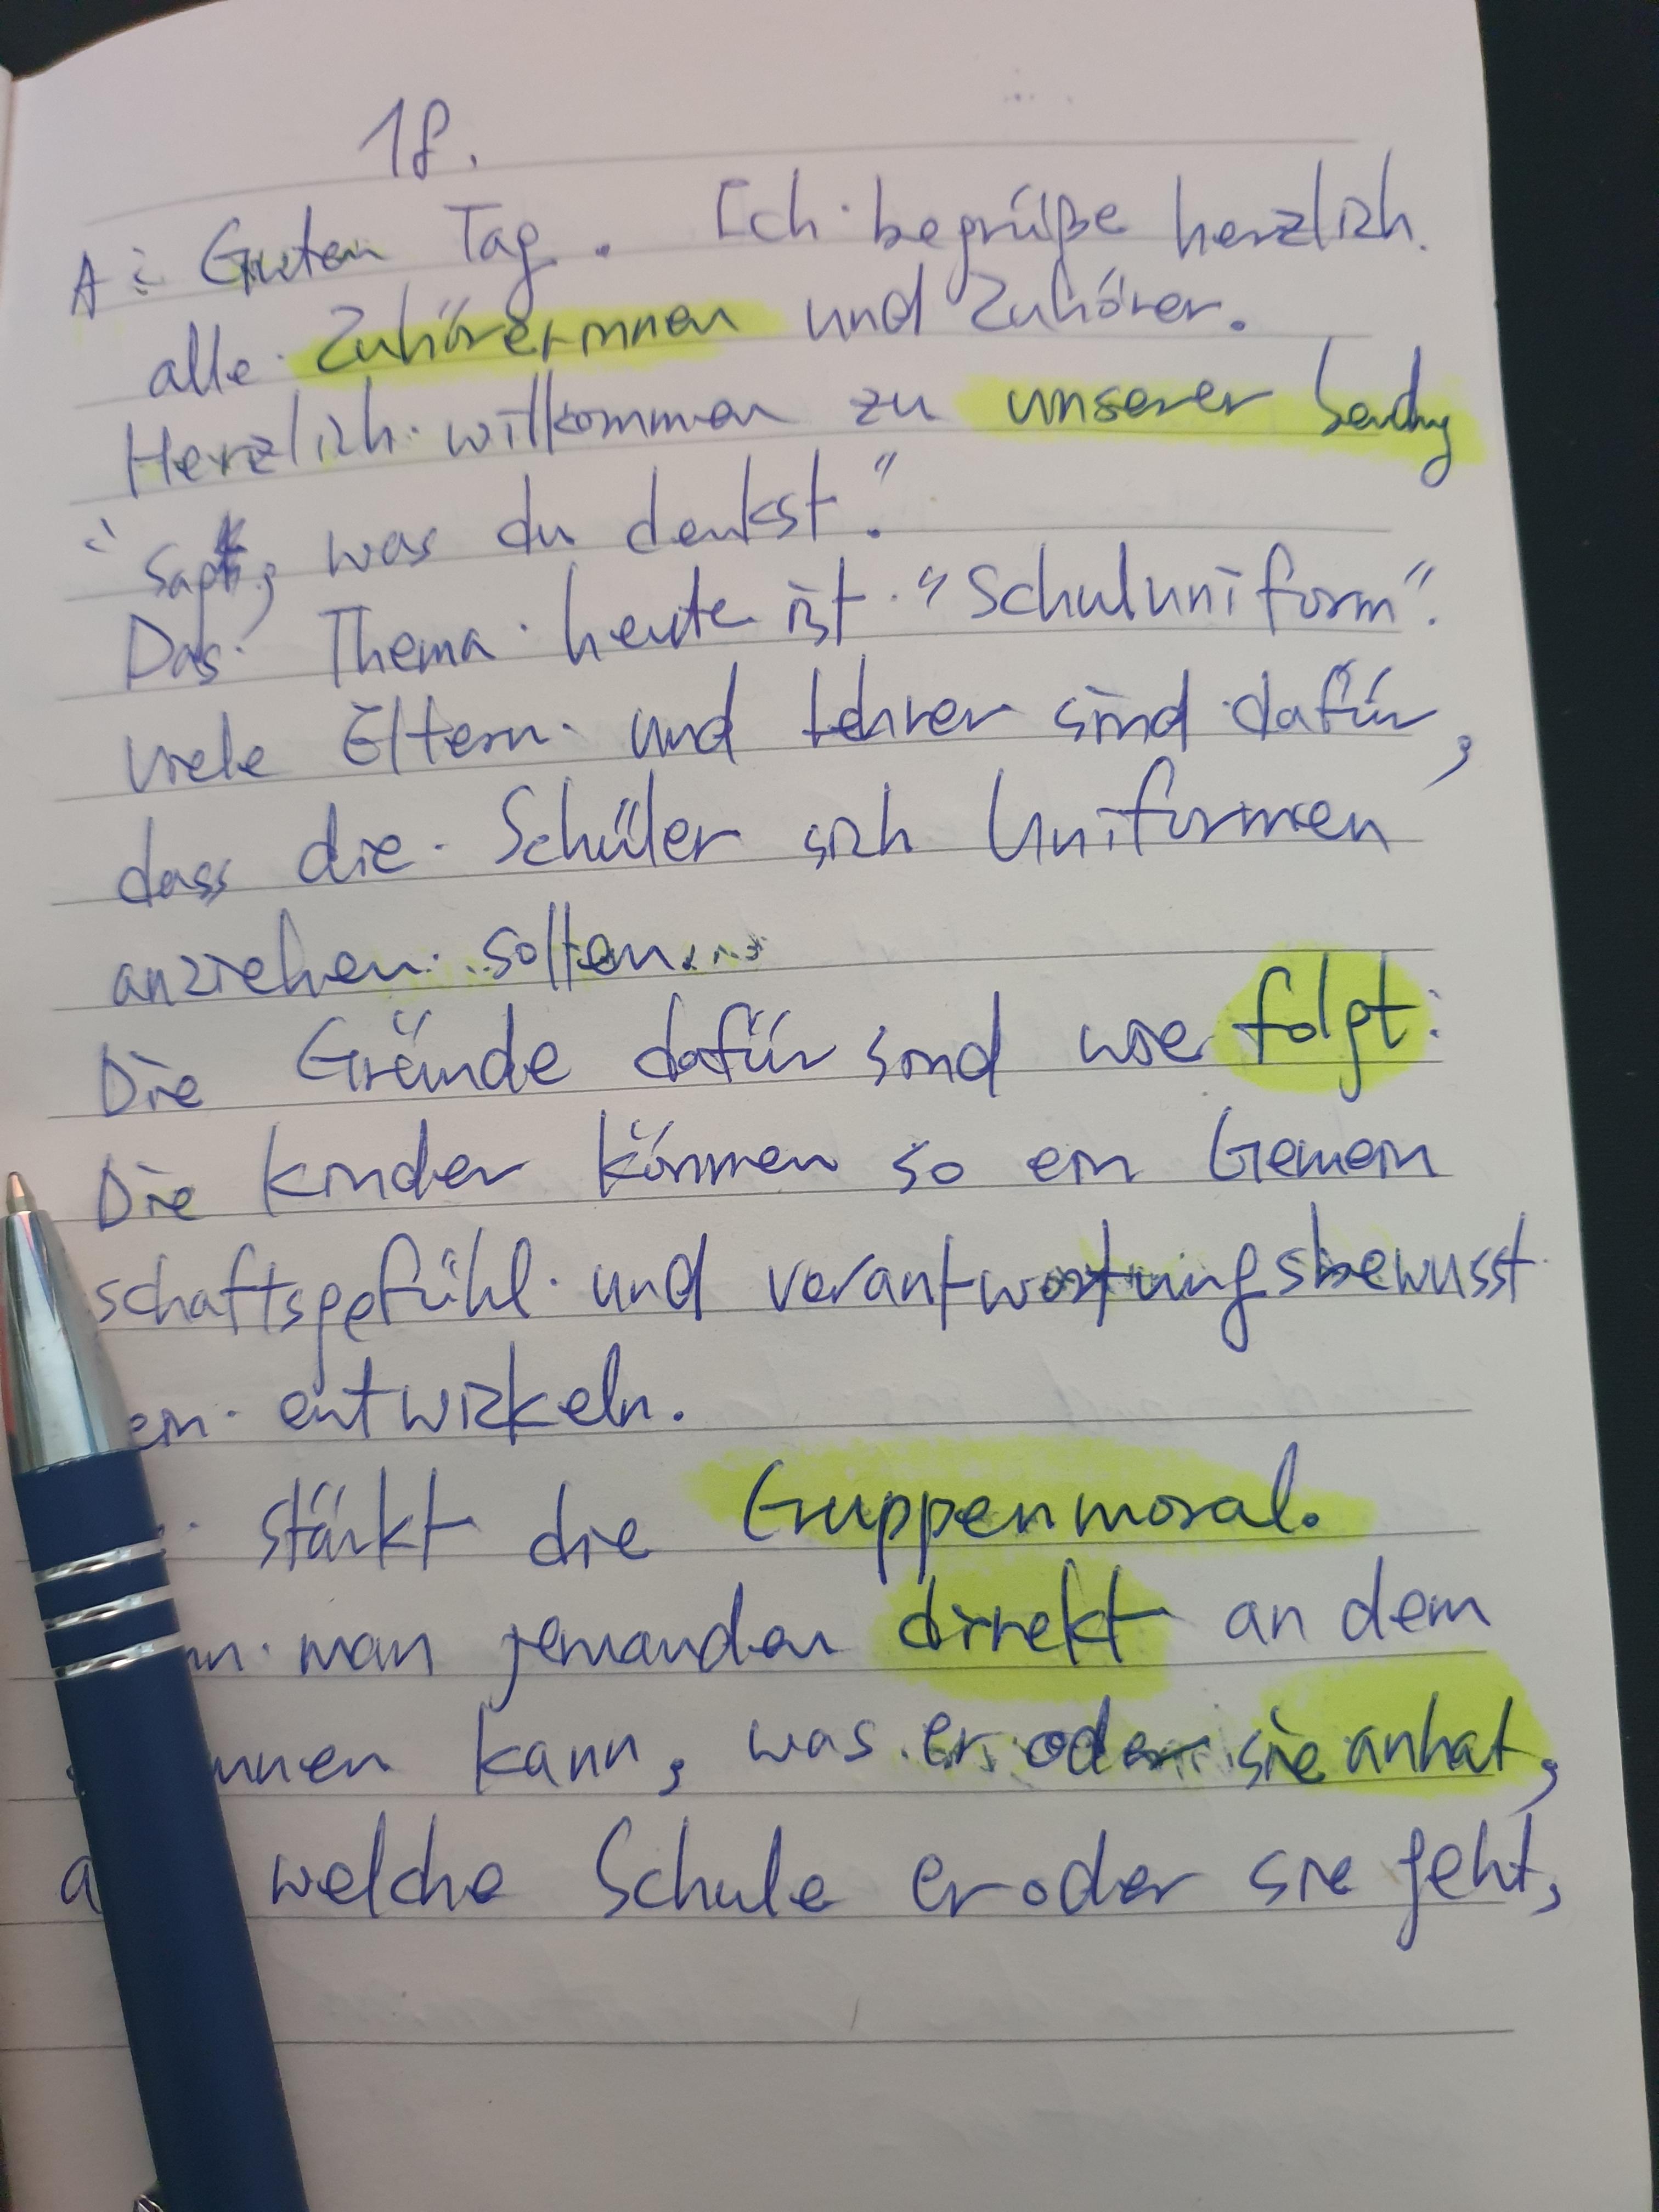 18.
A: Guten Tag. Ich begrüße herzlich
alle Zuhörerinnen und Zuhörer.
Herzlich willkommen zu unserer Sendung
"Sag, was du denkst."
Das Thema heute ist "Schuluniform".
Viele Eltern und Lehrer sind dafür,
dass die Schüler sich Uniformen
anziehen sollten.
Die Gründe dafür sind wie folgt:
Die Kinder können so ein Gemein
schaftsgefühl und verantwortungsbewusst
ein entwickeln.
stärkt die Gruppenmoral.
man jemanden direkt an dem
kann, was er oder sie anhat,
welche Schule er oder sie geht,